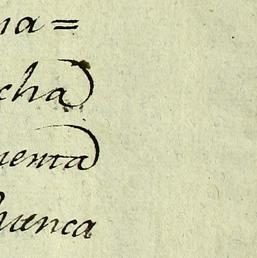 na=
cha
uenta
huenca